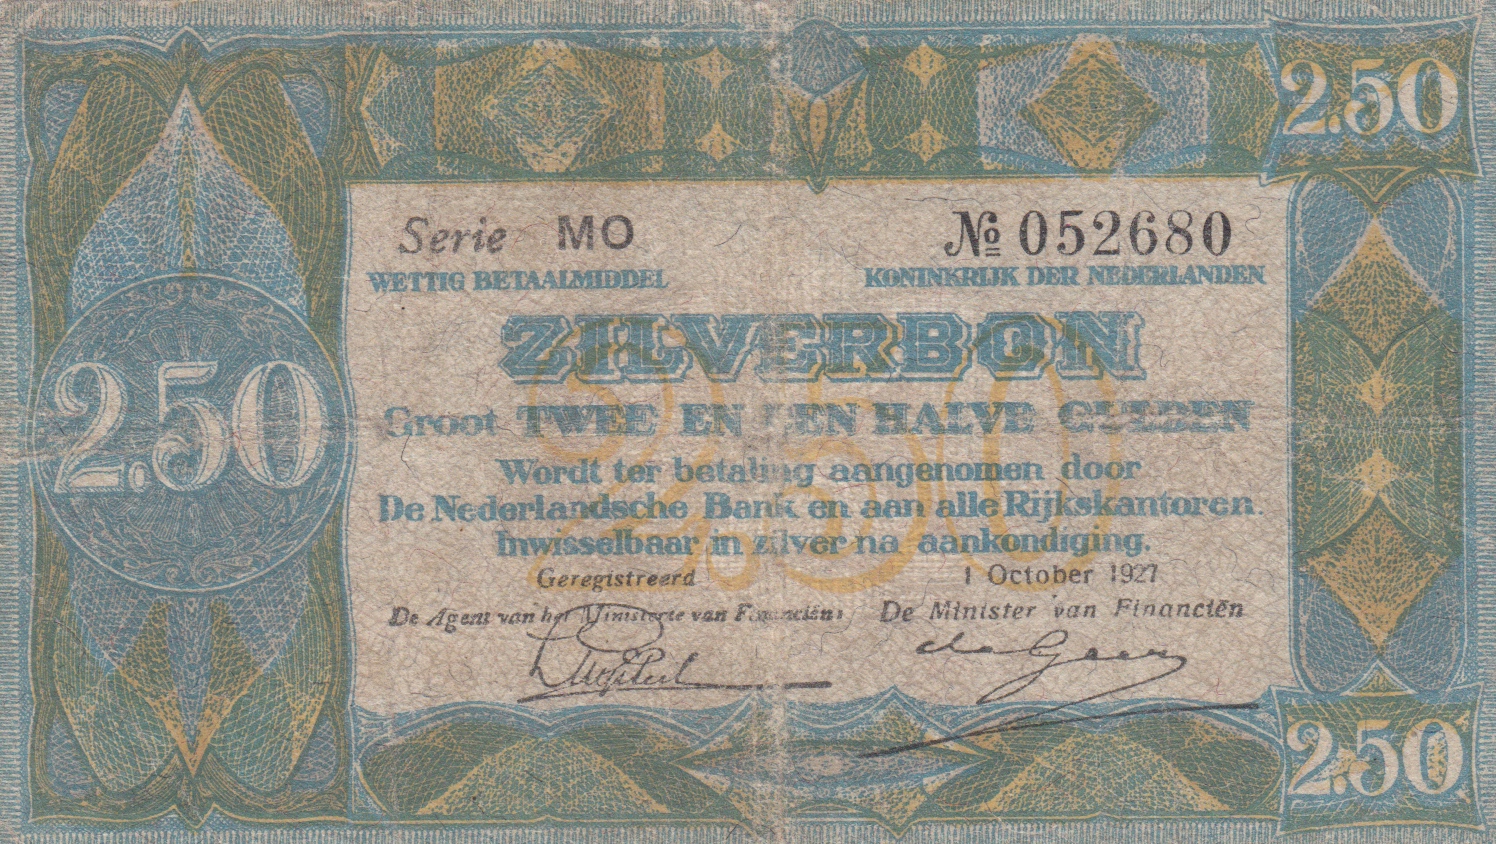 2.50
Serie MO
№ 052680
WETTIG BETAALMIDDEL
KONINKRIJK DER NEDERLANDEN
ZILVERBON
2.50
2.50
Groot TWEE EN EEN HALVE GULDEN
Wordt ter betaling aangenomen door
De Nederlandsche Bank en aan alle Rijkskantoren.
Inwisselbaar in zilver na aankondiging.
Geregistreerd
1 October 1927
De Agent van het Ministerie van Financiën:
De Minister van Financiën
de Geer
2.50